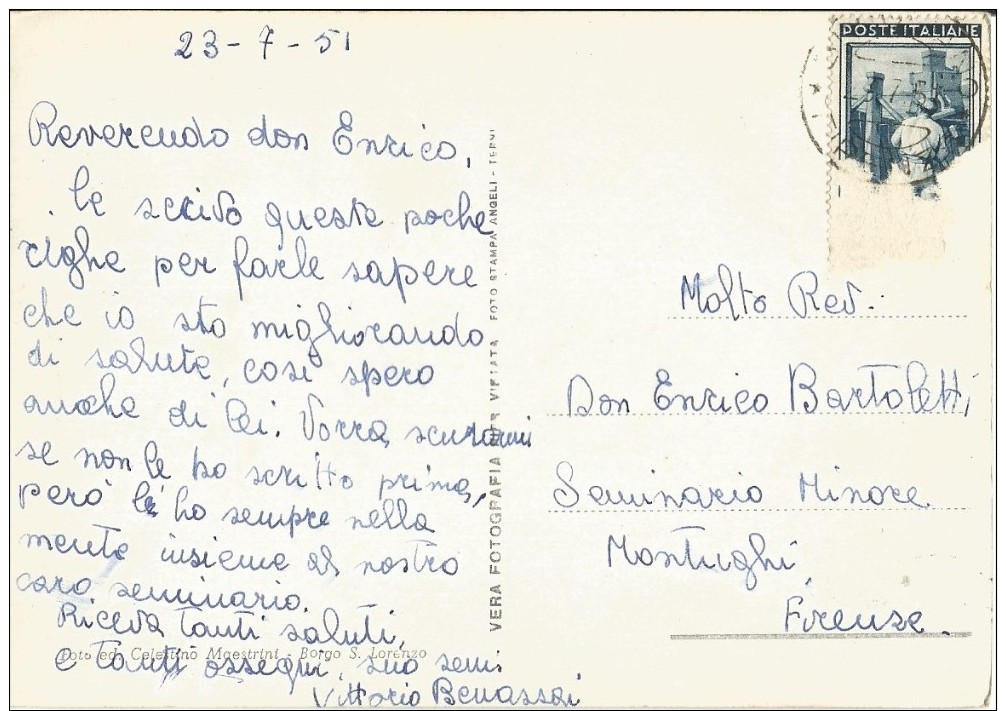 23-7-51
POSTE ITALIANE
Reverendo don Enrico,
le scrivo queste poche
righe per farle sapere
che io sto migliorando
di salute, così spero
anche di lei. Vorrà scusarmi
se non le ho scritto prima,
però lei ho sempre nella
mente insieme al nostro
caro seminario.
Riceva tanti saluti,
e tanti ossequi, suo sem.
Vittorio Benassai
Foto ed. Celestino Maestrini - Borgo S. Lorenzo
VERA FOTOGRAFIA RIPR. VIETATA FOTO STAMPA ANGELI - TERNI
Molto Rev.
Don Enrico Bartoletti
Seminario Minore
Montughi
Firenze.